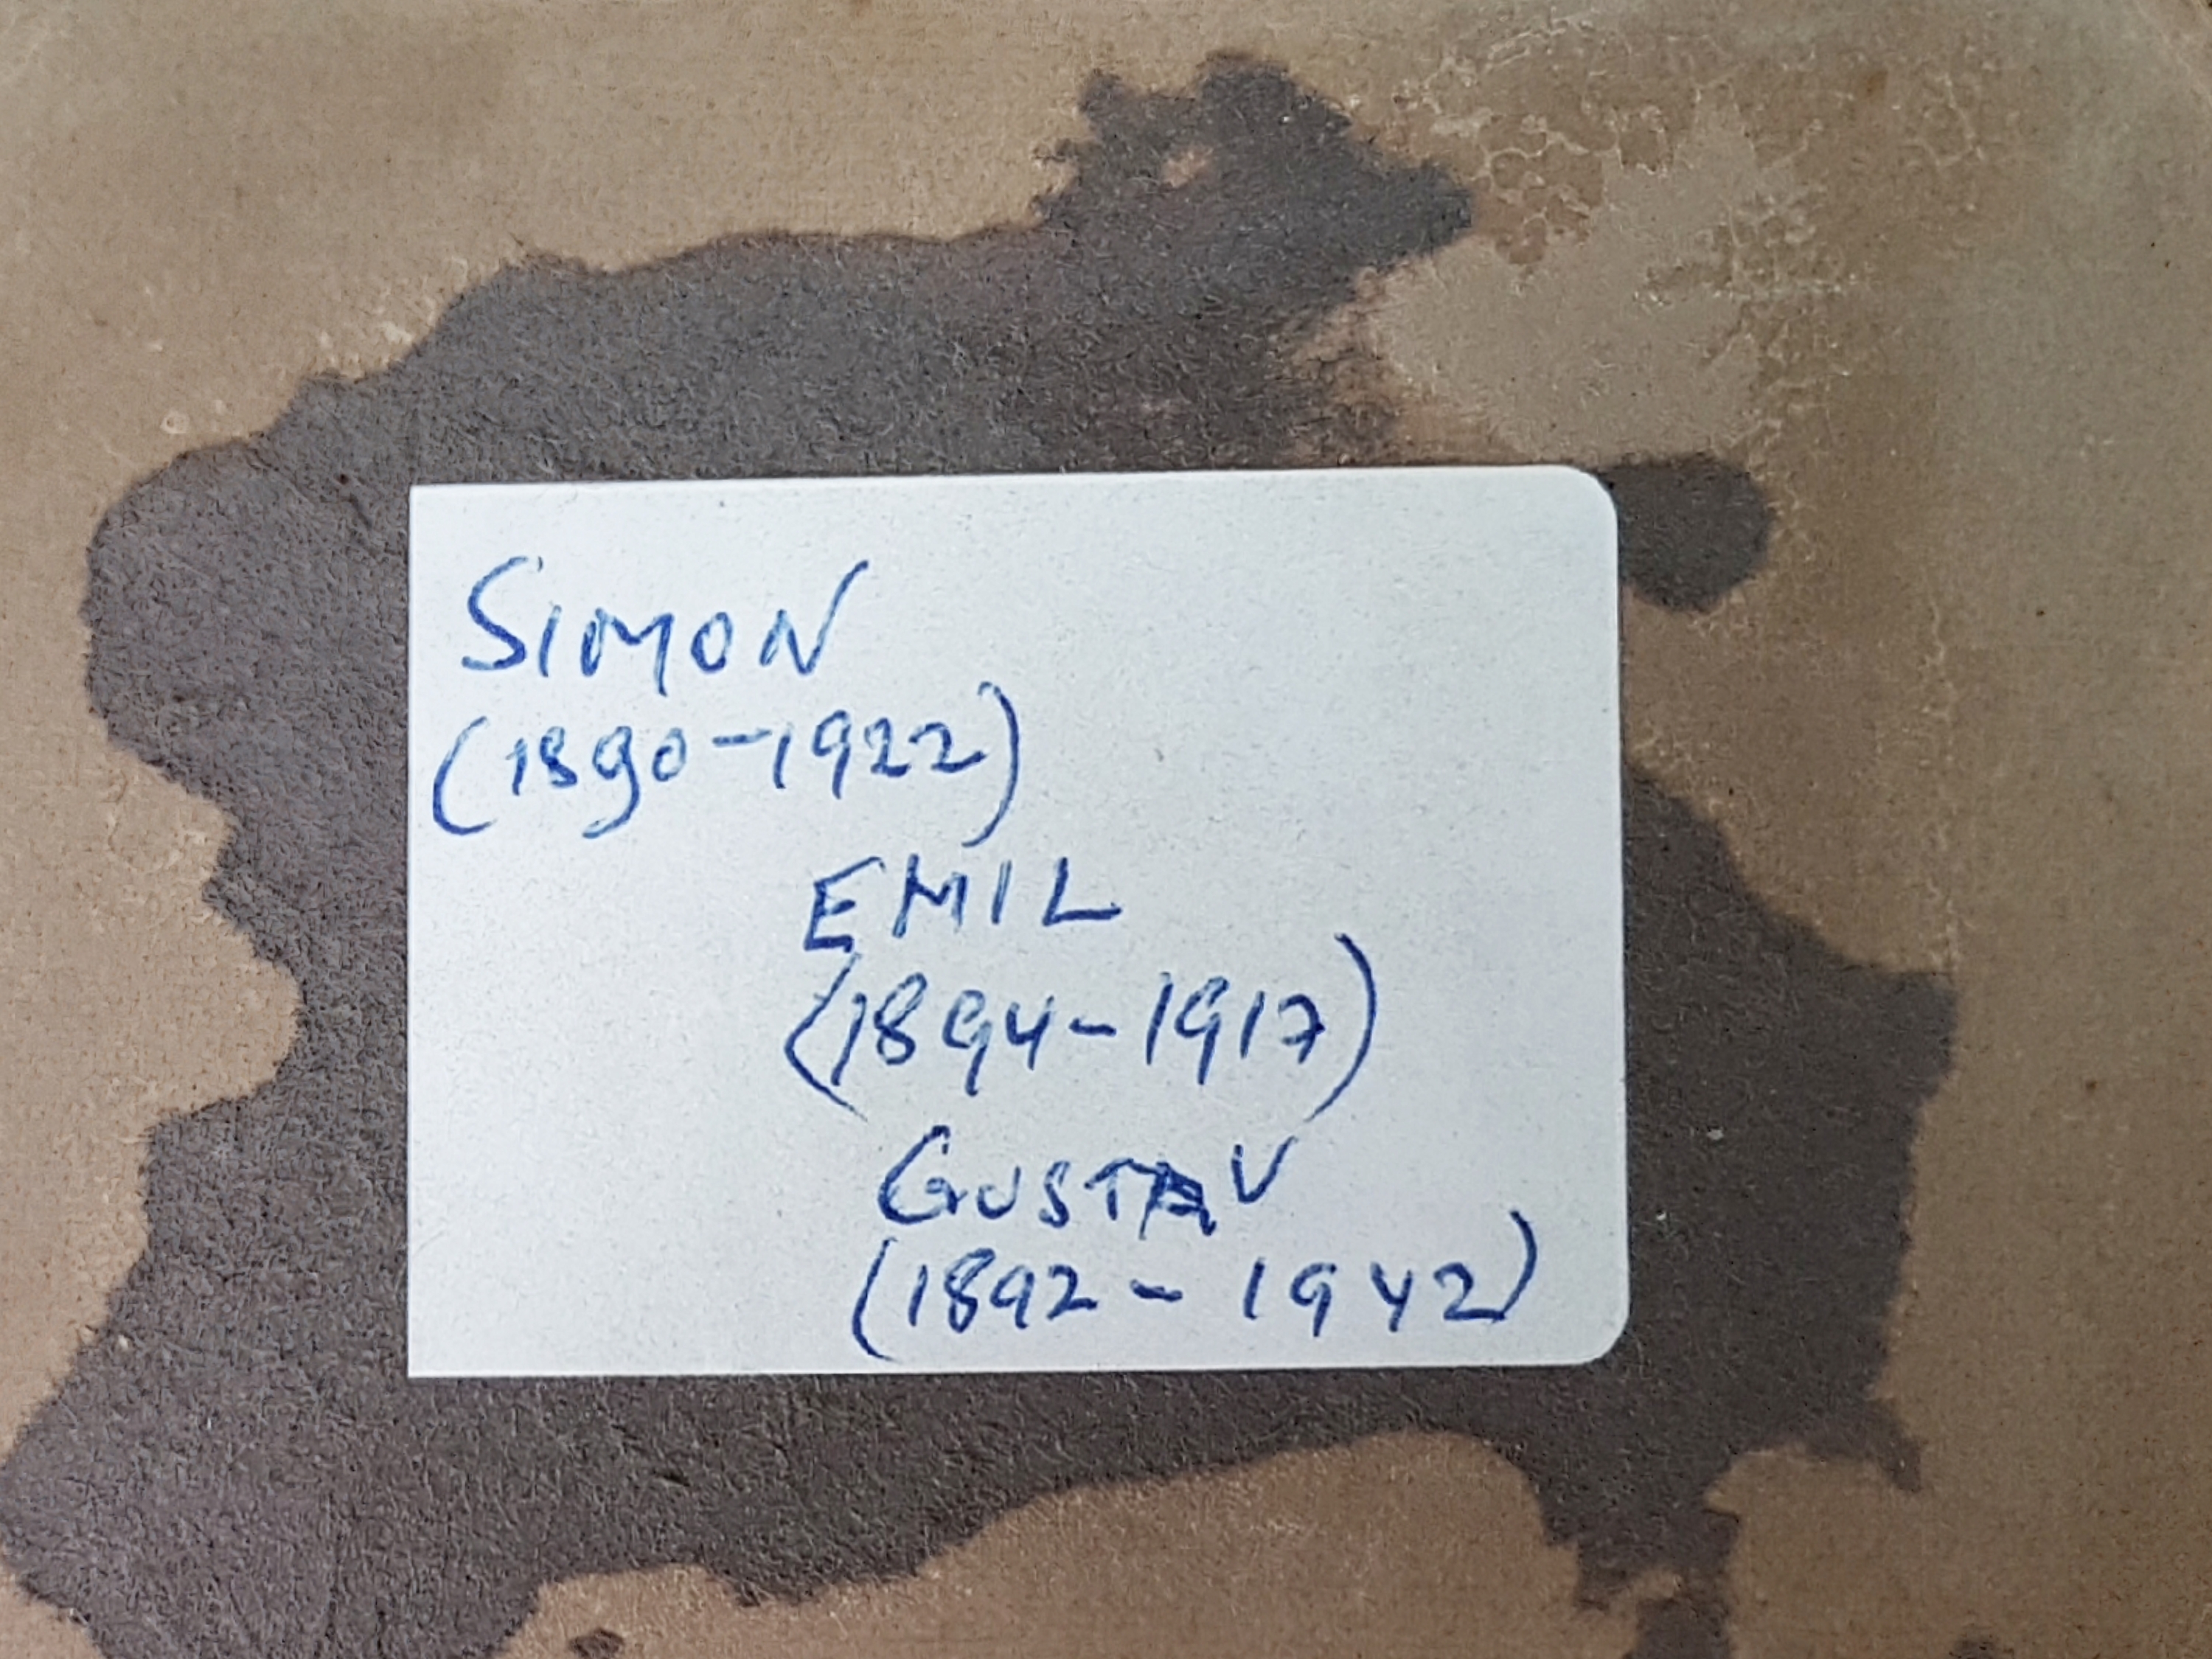 SIMON
(1890-1922)
EMIL
(1894-1917)
GUSTAV
(1892-1942)